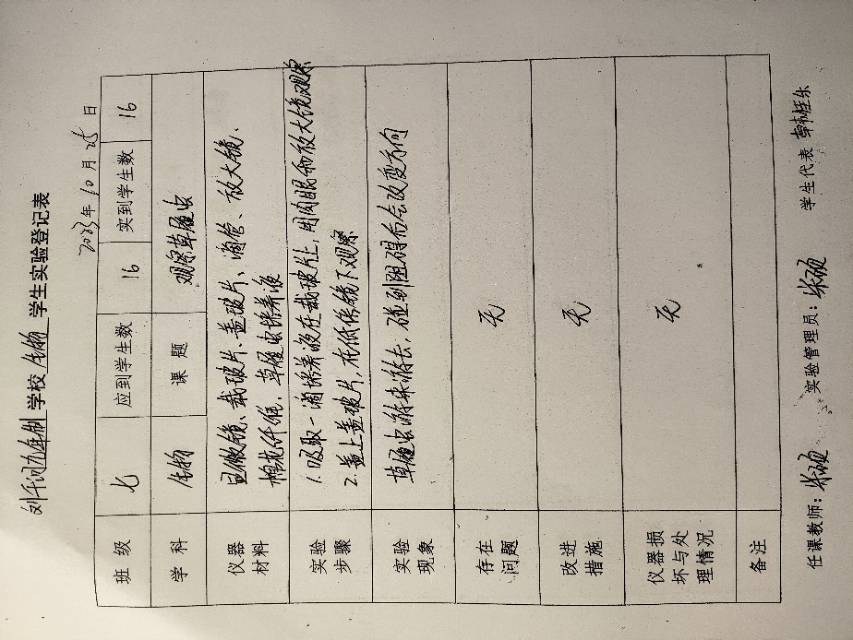 刘千河九年制学校 生物 学生实验登记表
2023年10月25日
班级 七 应到学生数 16 实到学生数 16
学科 生物 课题 观察草履虫
仪器材料 显微镜、载玻片、盖玻片、滴管、放大镜、
棉花纤维、草履虫培养液
实验步骤 1.吸取一滴培养液在载玻片上,用肉眼和放大镜观察
2.盖上盖玻片,在低倍镜下观察
实验现象 草履虫游来游去,碰到阻碍后会改变方向
存在问题 无
改进措施 无
仪器损坏与处理情况 无
备注
任课教师: 实验管理员: 学生代表